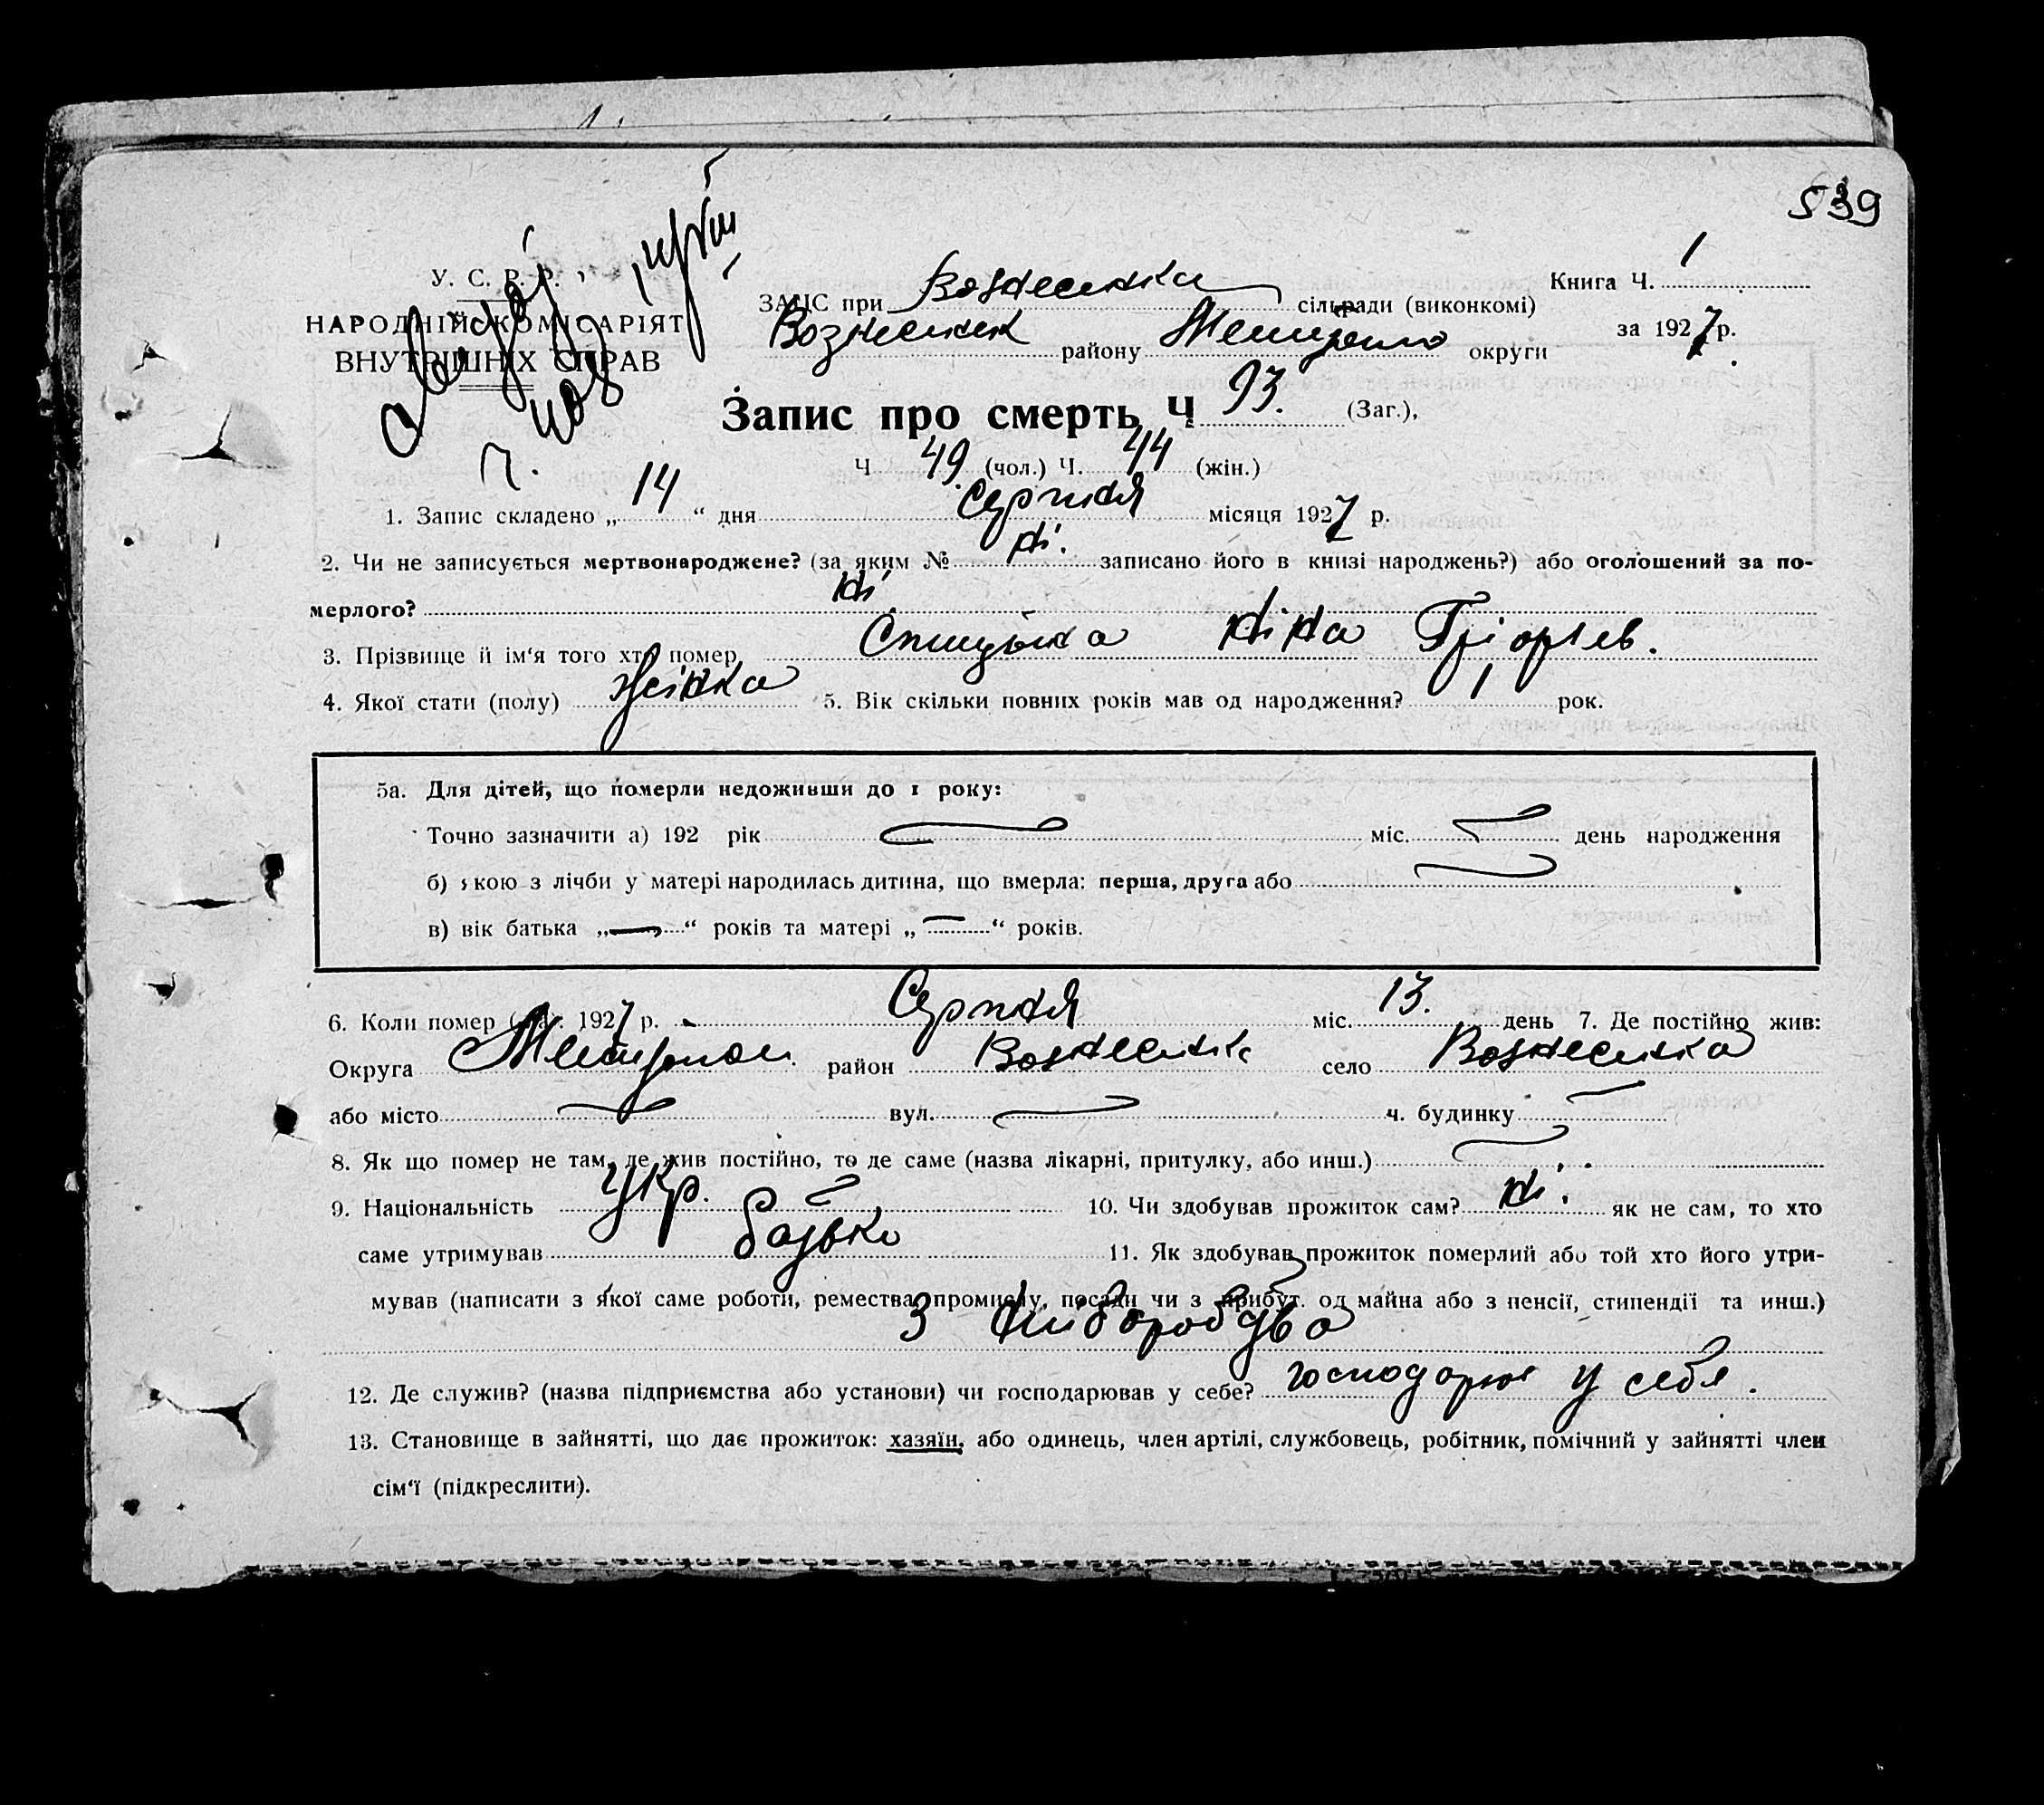 539
У. С. Р. Р.
НАРОДНІЙ КОМІСАРІЯТ
ВНУТРІШНІХ СПРАВ
ЗАГС при Вознесенка сільради (виконкомі)
Книга Ч. 1
Вознесенск району округи
за 1927 р.
Запис про смерть Ч 93. (Заг.),
Ч 49. (чол.) Ч. 44 (жін.)
1. Запис складено „ 14 “ дня Серпня місяця 1927 р.
2. Чи не записується мертвонароджене? (за яким № ні. записано його в книзі народжень?) або оголошений за по-
мерлого? ні.
3. Прізвище й ім‘я того хто помер Ніна Грігорьев.
4. Якої стати (полу) жінка 5. Вік скільки повних років мав од народження? 1 рок.
5а. Для дітей, що померли недоживши до 1 року:
Точно зазначити а) 192 рік міс. день народження
б) якою з лічби у матері народилась дитина, що вмерла: перша, друга або
в) вік батька „ — “ років та матері „ — “ років.
6. Коли помер (ла). 1927 р. Серпня міс. 13. день 7. Де постійно жив:
Округа Мелітополь район Вознесенка село Вознесенка
або місто вул. ч. будинку
8. Як що помер не там, де жив постійно, то де саме (назва лікарні, притулку, або инш.)
9. Національність Укр. 10. Чи здобував прожиток сам? ні. як не сам, то хто
саме утримував батько 11. Як здобував прожиток померлий або той хто його утри-
мував (написати з якої саме роботи, ремества, промислу, посади чи з прибут. од майна або з пенсії, стипендії та инш.)
З
12. Де служив? (назва підприємства або установи) чи господарював у себе? господарює у себя.
13. Становище в зайнятті, що дає прожиток: хазяїн, або одинець, член артілі, службовець, робітник, помічний у зайнятті член
сім‘ї (підкреслити).